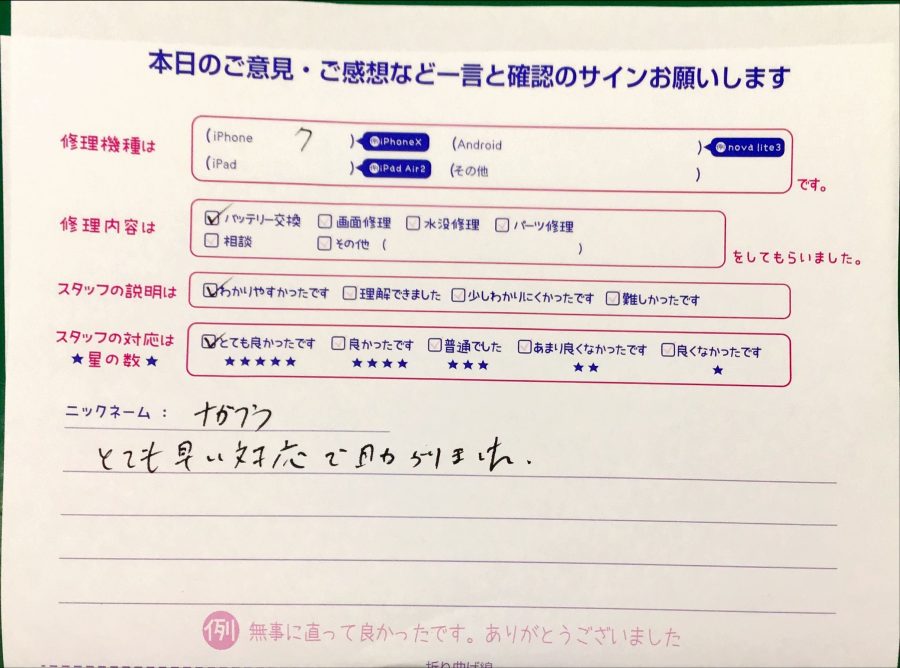 本日のご意見・ご感想など一言と確認のサインお願いします
修理機種は (iPhone 7 ) iPhoneX (Android ) nova lite3
(iPad ) iPad Air2 (その他 ) です。
修理内容は ☑バッテリー交換 □画面修理 □水没修理 □パーツ修理
□相談 □その他 ( ) をしてもらいました。
スタッフの説明は ☑わかりやすかったです □理解できました □少しわかりにくかったです □難しかったです
スタッフの対応は ☑とても良かったです □良かったです □普通でした □あまり良くなかったです □良くなかったです
★星の数★ ★★★★★ ★★★★ ★★★ ★★ ★
ニックネーム：
とても早い対応で助かりました.
例 無事に直って良かったです。ありがとうございました
折り曲げ線